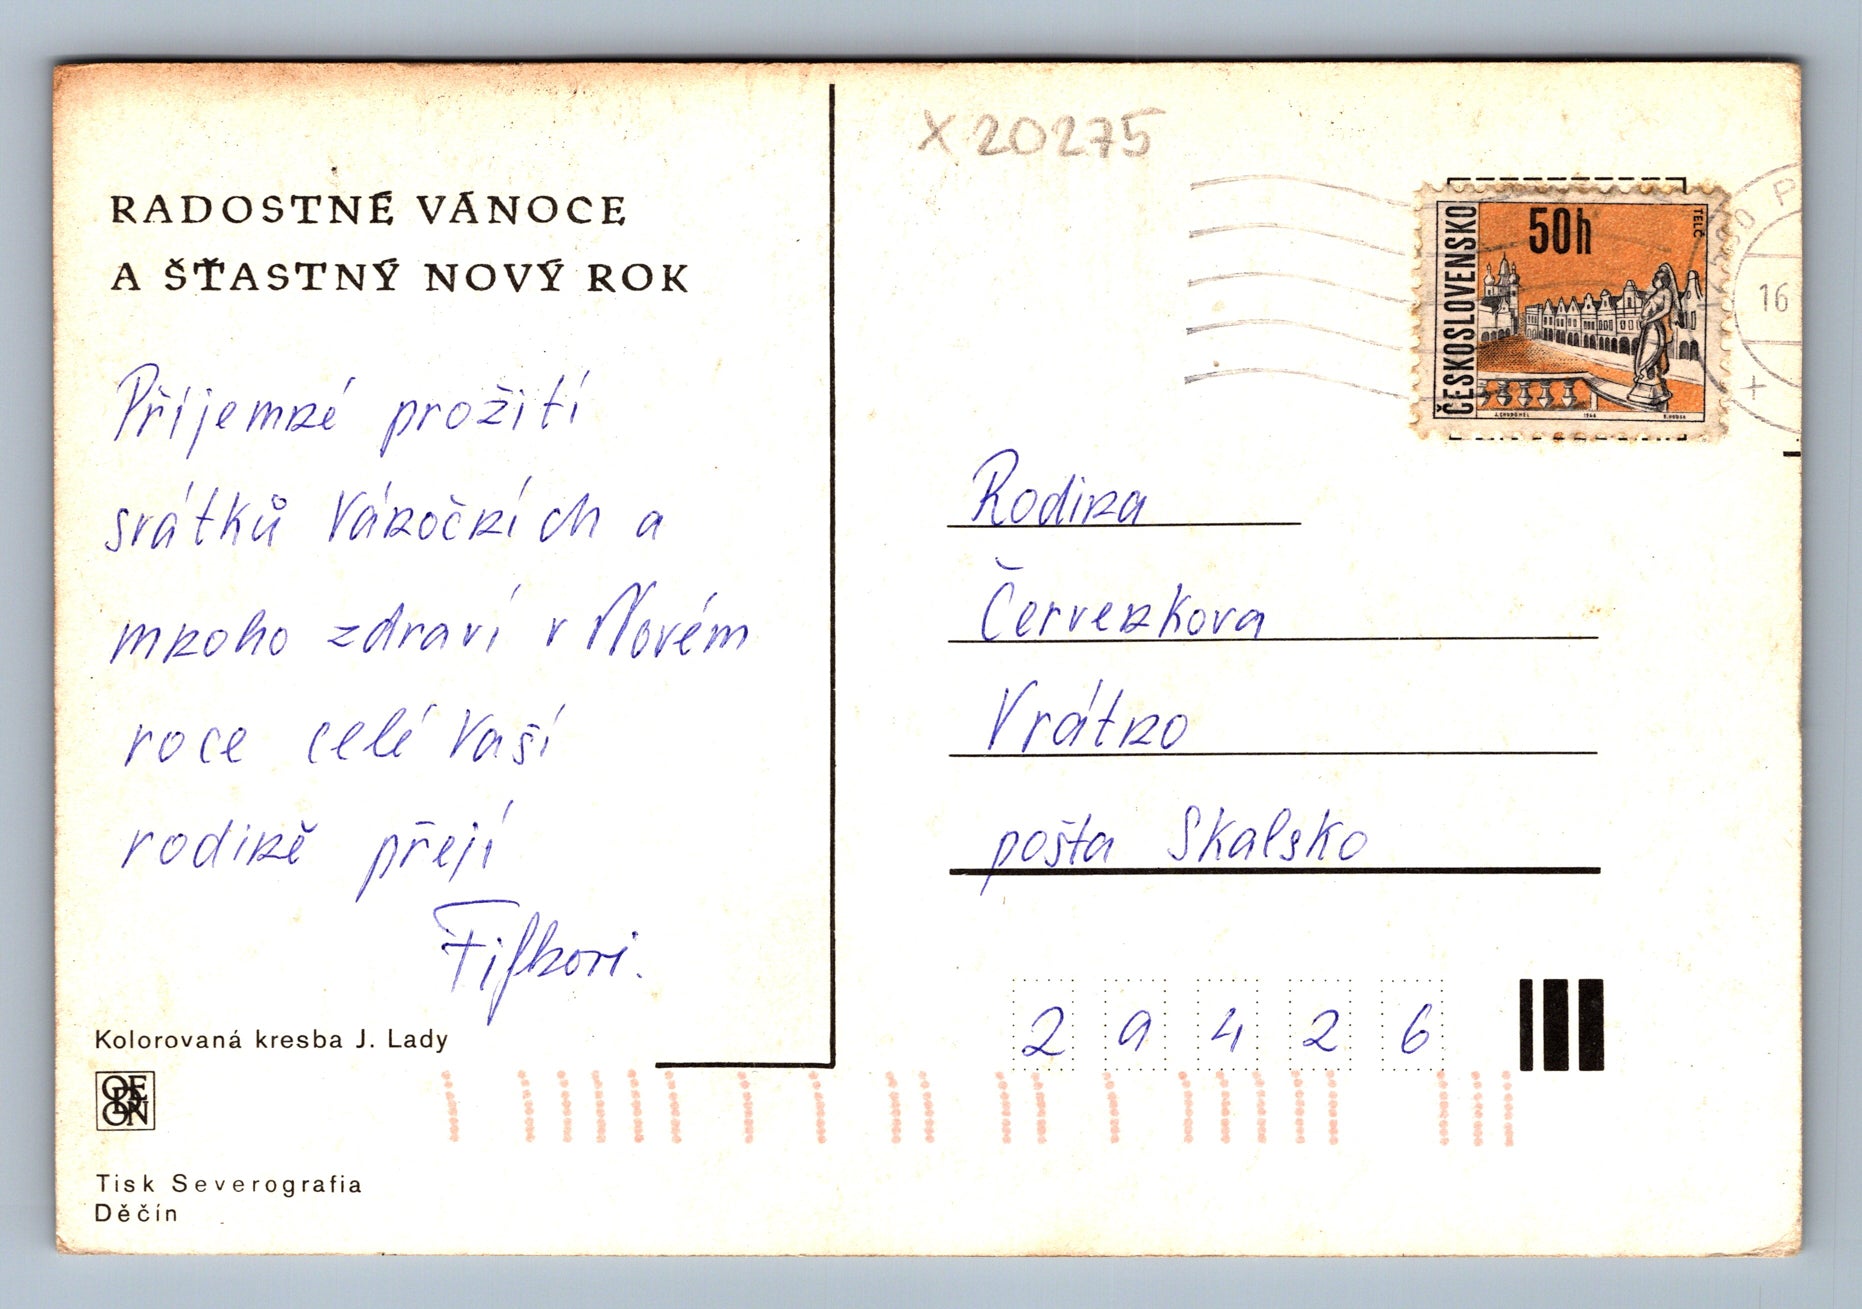 X 20275
RADOSTNÉ VÁNOCE
A ŠŤASTNÝ NOVÝ ROK
Příjemné prožití
svátků Vánočních a
mnoho zdraví v Novém
roce celé Vaší
rodině přejí
Fifkovi.
Kolorovaná kresba J. Lady
ODEON
Tisk Severografia
Děčín
ČESKOSLOVENSKO
50h
TELČ
1966
16
Rodina
Červenkova
Vrátno
pošta Skalsko
29426